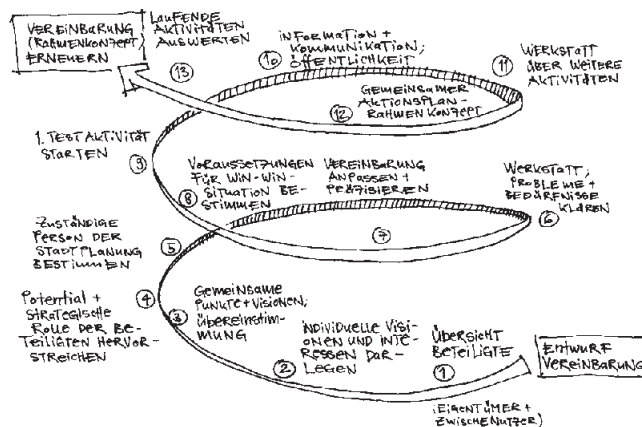 VEREINBARUNG
(RAHMENKONZEPT)
ERNEUERN
LAUFENDE
AKTIVITÄTEN
AUSWERTEN
13
10
INFORMATION +
KOMMUNIKATION,
ÖFFENTLICHKEIT
11
WERKSTATT
ÜBER WEITERE
AKTIVITÄTEN
GEMEINSAMER
AKTIONSPLAN-
RAHMENKONZEPT
12
1. TESTAKTIVITÄT
STARTEN
9
VORAUSSETZUNGEN
FÜR WIN-WIN-
SITUATION BE-
STIMMEN
8
VEREINBARUNG
ANPASSEN +
PRÄZISIEREN
7
WERKSTATT,
PROBLEME +
BEDÜRFNISSE
KLÄREN
6
ZUSTÄNDIGE
PERSON DER
STADTPLANUNG
BESTIMMEN
5
POTENTIAL +
STRATEGISCHE
ROLLE DER BE-
TEILIGTEN HERVOR-
STREICHEN
4
GEMEINSAME
PUNKTE + VISIONEN,
ÜBEREINSTIM-
MUNG
3
INDIVIDUELLE VISI-
ONEN UND INTE-
RESSEN DAR-
LEGEN
2
ÜBERSICHT
BETEILIGTE
1
(EIGENTÜMER +
ZWISCHENNUTZER)
ENTWURF
VEREINBARUNG